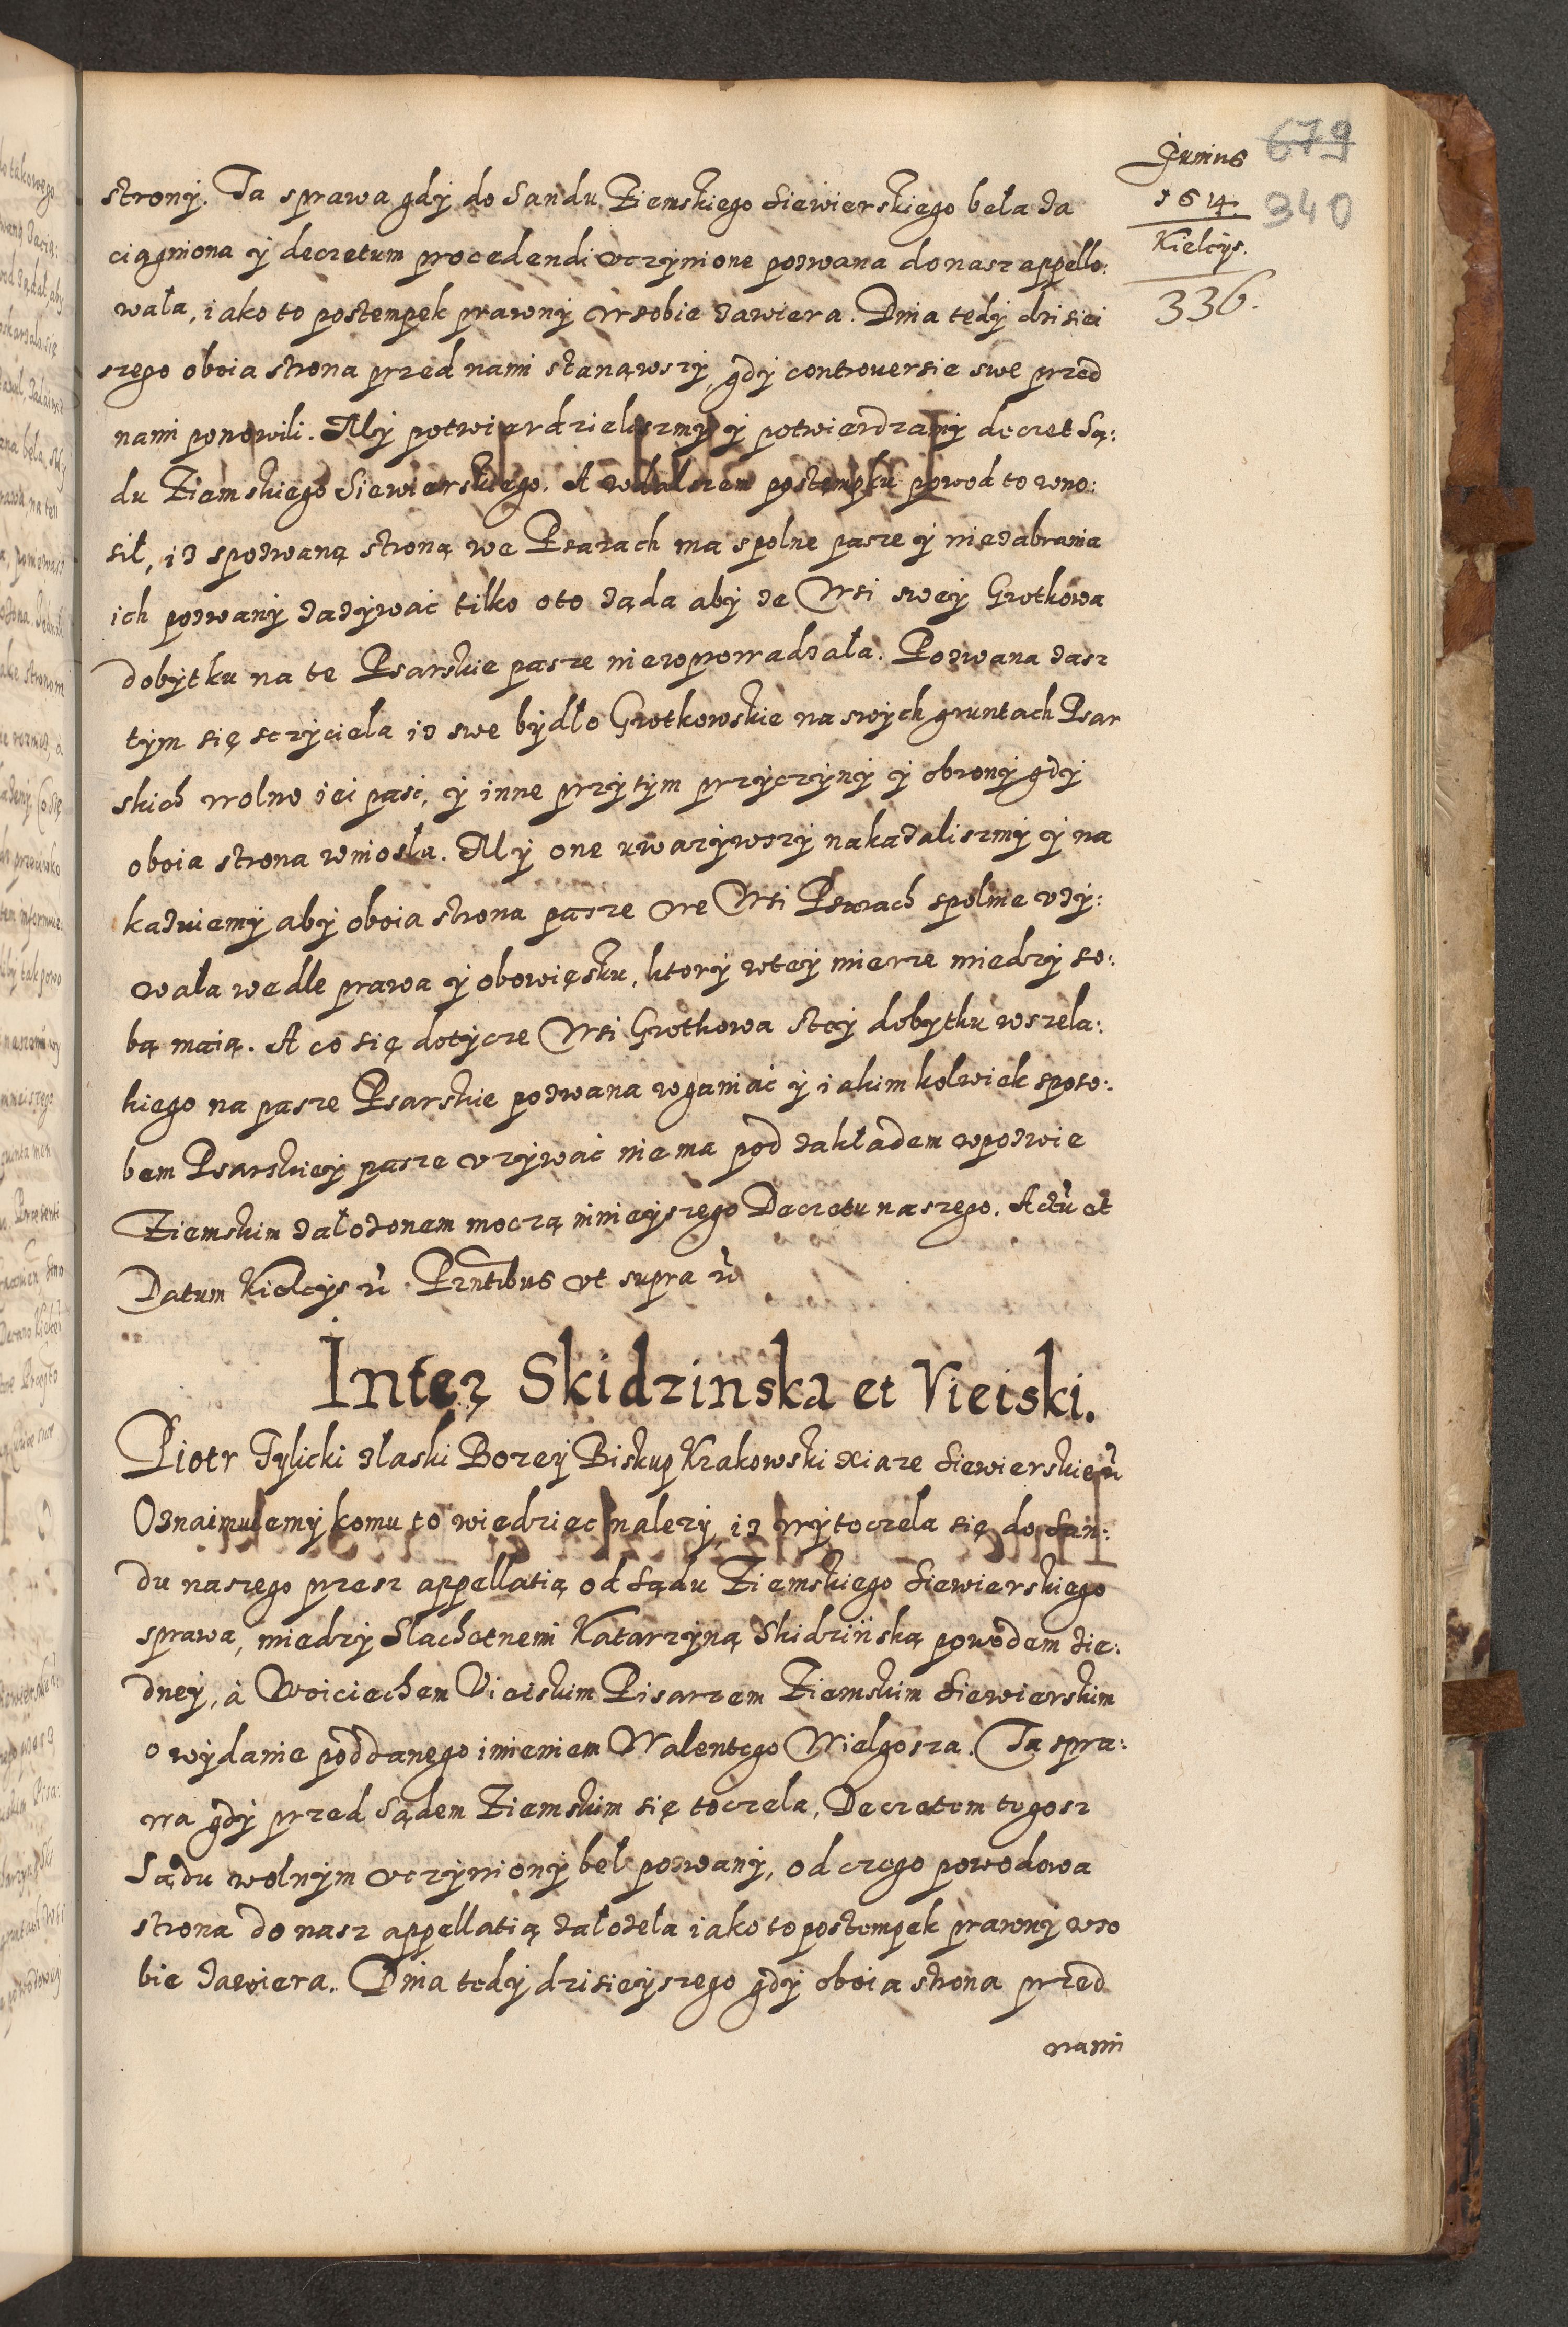 Junius
679
1614.
340
Kielcijs.
336.
strony. Ta sprawa gdy do Sandu Ziemskiego Siewierskiego beła za
ciągniona y decretum procedendi uczynione pozwana do nasz appello:
wała, iako to postempek prawny w sobie zawiera. Dnia tedy dzisiei
szego oboia strona przed nami stanąwszy, gdy controuersie swe przed
nami ponowili. My potwierdzielismy y potwierdzamy decret Są:
du Ziemskiego Siewierskiego. A w dalszem postempku powod to wno:
sił, iz s pozwaną stroną we Psarach ma spolne pasze y niezabrania
ich pozwany zazywać tilko o to ząda aby ze Wsi swey Grotkowa
dobytku na te Psarskie pasze niewprowadzała. Pozwana zasz
tym się szczyciela iz swe bydło Grotkowskie na swych gruntach Psar
skich wolno iei paść, y inne przytym przyczyny y obrony gdy
oboia strona wniosła. My one uwazywszy nakazaliszmy y na
kazuiemy aby oboia strona pasze we Wsi Psarach spolnie uzy:
wała wedle prawa y obowięsku, ktory w tey mierze miedzy so:
bą maią. A co się dotycze Wsi Grotkowa stey dobytku wszela:
kiego na pasze Psarskie pozwana wganiać y iakimkolwiek sposo:
bem Psarskiey pasze uzywać nie ma pod zakładem w pozwie
Ziemskim załozonem moczą ninieyszego Decretu naszego. Actu et
Datum Kielcijs Prntibus ut supra
Inter Skidzinska et Vieiski.
Piotr Tylicki z łaski Bozey Biskup Krakowski xiaze Siewierskie
Oznaimuiemy komu to wiedziec nalezy, iz wytoczela się do San:
du naszego przesz appellatią od Sądu Ziemskiego Siewierskiego
sprawa, miedzy Slachetnemi Katarzyną Skidzińską powodem zie:
dney, a Woiciechem Vieiskim Pisarzem Ziemskim Siewierskim
o wydanie poddanego imieniem Walentego Wielgosza. Ta spra:
wa gdy przed Sądem Ziemskim się toczela, Decretem tegosz
Sądu wolnym uczyniony beł pozwany, od czego powodowa
strona do nasz appellatią załozela iako to postempek prawny w so
bie zawiera. Dnia tedy dzisieyszego gdy oboia strona przed
nami